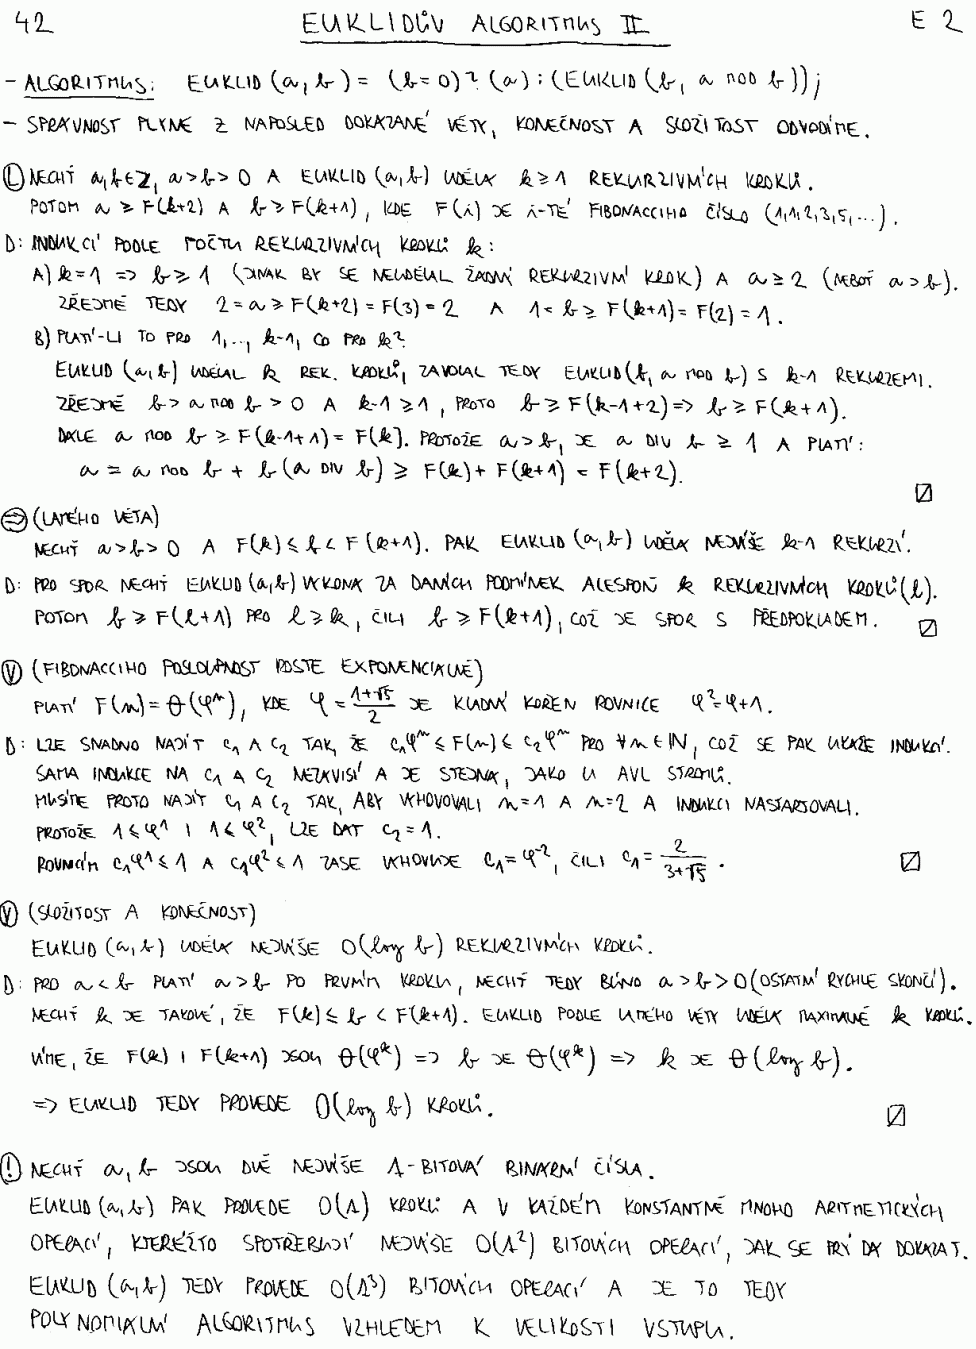 42 EUKLIDŮV ALGORITMUS II E 2
- ALGORITMUS: EUKLID (a, b) = (b=0) ? (a) : (EUKLID (b, a MOD b));
- SPRÁVNOST PLYNE Z NAPOSLED DOKÁZANÉ VĚTY, KONEČNOST A SLOŽITOST ODVODÍME.
Ⓛ NECHŤ a, b ∈ Z, a > b > 0 A EUKLID (a, b) UDĚLÁ k ≥ 1 REKURZIVNÍCH KROKŮ.
POTOM a ≥ F(k+2) A b ≥ F(k+1), KDE F(i) JE i-TÉ FIBONACCIHO ČÍSLO (1,1,2,3,5,...).
D: INDUKCÍ PODLE POČTU REKURZIVNÍCH KROKŮ k:
A) k=1 => b ≥ 1 (JINAK BY SE NEUDĚLAL ŽÁDNÝ REKURZIVNÍ KROK) A a ≥ 2 (NEBOŤ a > b).
ZŘEJMĚ TEDY 2 = a ≥ F(k+2) = F(3) = 2 A 1 = b ≥ F(k+1) = F(2) = 1.
B) PLATÍ-LI TO PRO 1,..., k-1, CO PRO k?
EUKLID (a, b) UDĚLAL k REK. KROKŮ, ZAVOLAL TEDY EUKLID (b, a MOD b) S k-1 REKURZEMI.
ZŘEJMĚ b > a MOD b > 0 A k-1 ≥ 1, PROTO b ≥ F(k-1+2) => b ≥ F(k+1).
DÁLE a MOD b ≥ F(k-1+1) = F(k). PROTOŽE a > b, JE a DIV b ≥ 1 A PLATÍ:
a = a MOD b + b (a DIV b) ≥ F(k) + F(k+1) = F(k+2).
⊜ (LAMÉHO VĚTA)
NECHŤ a > b > 0 A F(k) ≤ b < F(k+1). PAK EUKLID (a, b) UDĚLÁ NEJVÝŠE k-1 REKURZÍ.
D: PRO SPOR NECHŤ EUKLID (a, b) VYKONÁ ZA DANÝCH PODMÍNEK ALESPOŇ k REKURZIVNÍCH KROKŮ (l).
POTOM b ≥ F(l+1) PRO l ≥ k, ČILI b ≥ F(k+1), COŽ JE SPOR S PŘEDPOKLADEM.
Ⓥ (FIBONACCIHO POSLOUPNOST ROSTE EXPONENCIÁLNĚ)
PLATÍ F(n) = Θ(φⁿ), KDE φ = (1+√5)/2 JE KLADNÝ KOŘEN ROVNICE φ² = φ+1.
D: LZE SNADNO NAJÍT c₁ A c₂ TAK, ŽE c₁φⁿ ≤ F(n) ≤ c₂φⁿ PRO ∀n ∈ IN, COŽ SE PAK UKÁŽE INDUKCÍ.
SAMA INDUKCE NA c₁ A c₂ NEZÁVISÍ A JE STEJNÁ, JAKO U AVL STROMŮ.
MUSÍME PROTO NAJÍT c₁ A c₂ TAK, ABY VYHOVOVALI n=1 A n=2 A INDUKCI NASTARTOVALI.
PROTOŽE 1 ≤ φ¹ I 1 ≤ φ², LZE DÁT c₂ = 1.
ROVNICÍM c₁φ¹ ≤ 1 A c₁φ² ≤ 1 ZASE VYHOVUJE c₁ = φ⁻², ČILI c₁ = 2/(3+√5).
Ⓥ (SLOŽITOST A KONEČNOST)
EUKLID (a, b) UDĚLÁ NEJVÝŠE O(log b) REKURZIVNÍCH KROKŮ.
D: PRO a < b PLATÍ a > b PO PRVNÍM KROKU, NECHŤ TEDY BÚNO a > b > 0 (OSTATNÍ RYCHLE SKONČÍ).
NECHŤ k JE TAKOVÉ, ŽE F(k) ≤ b < F(k+1). EUKLID PODLE LAMÉHO VĚTY UDĚLÁ MAXIMÁLNĚ k KROKŮ.
VÍME, ŽE F(k) I F(k+1) JSOU Θ(φᵏ) => b JE Θ(φᵏ) => k JE Θ(log b).
=> EUKLID TEDY PROVEDE O(log b) KROKŮ.
(!) NECHŤ a, b JSOU DVĚ NEJVÝŠE 1-BITOVÁ BINÁRNÍ ČÍSLA.
EUKLID (a, b) PAK PROVEDE O(1) KROKŮ A V KAŽDÉM KONSTANTNĚ MNOHO ARITMETICKÝCH
OPERACÍ, KTERÉŽTO SPOTŘEBUJÍ NEJVÝŠE O(1²) BITOVÝCH OPERACÍ, JAK SE PRÝ DÁ DOKÁZAT.
EUKLID (a, b) TEDY PROVEDE O(1³) BITOVÝCH OPERACÍ A JE TO TEDY
POLYNOMIÁLNÍ ALGORITMUS VZHLEDEM K VELIKOSTI VSTUPU.